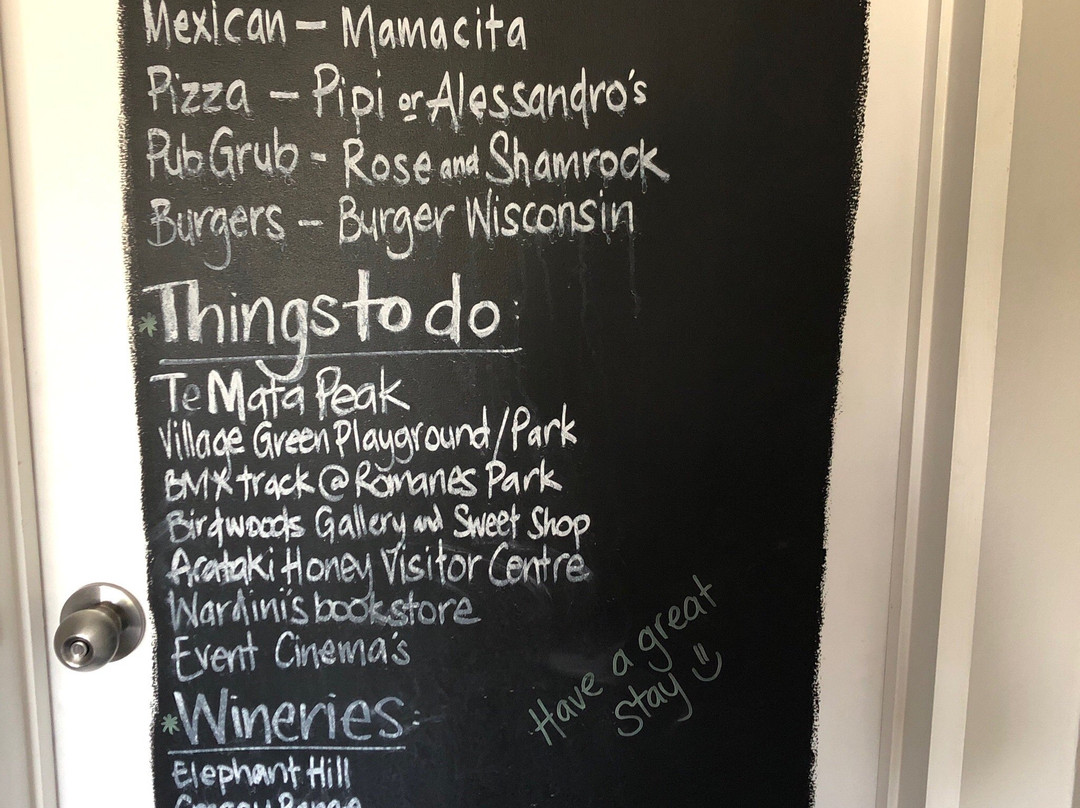 Mexican — Mamacita
Pizza — Pipi or Alessandro's
Pub Grub - Rose and Shamrock
Burgers — Burger Wisconsin
*Things to do:
Te Mata Peak
Village Green Playground/Park
BMX track @ Romanes Park
Birdwoods Gallery and Sweet Shop
Arataki Honey Visitor Centre
Wardini's bookstore
Event Cinema's
Have a great
Stay
*Wineries:
Elephant Hill